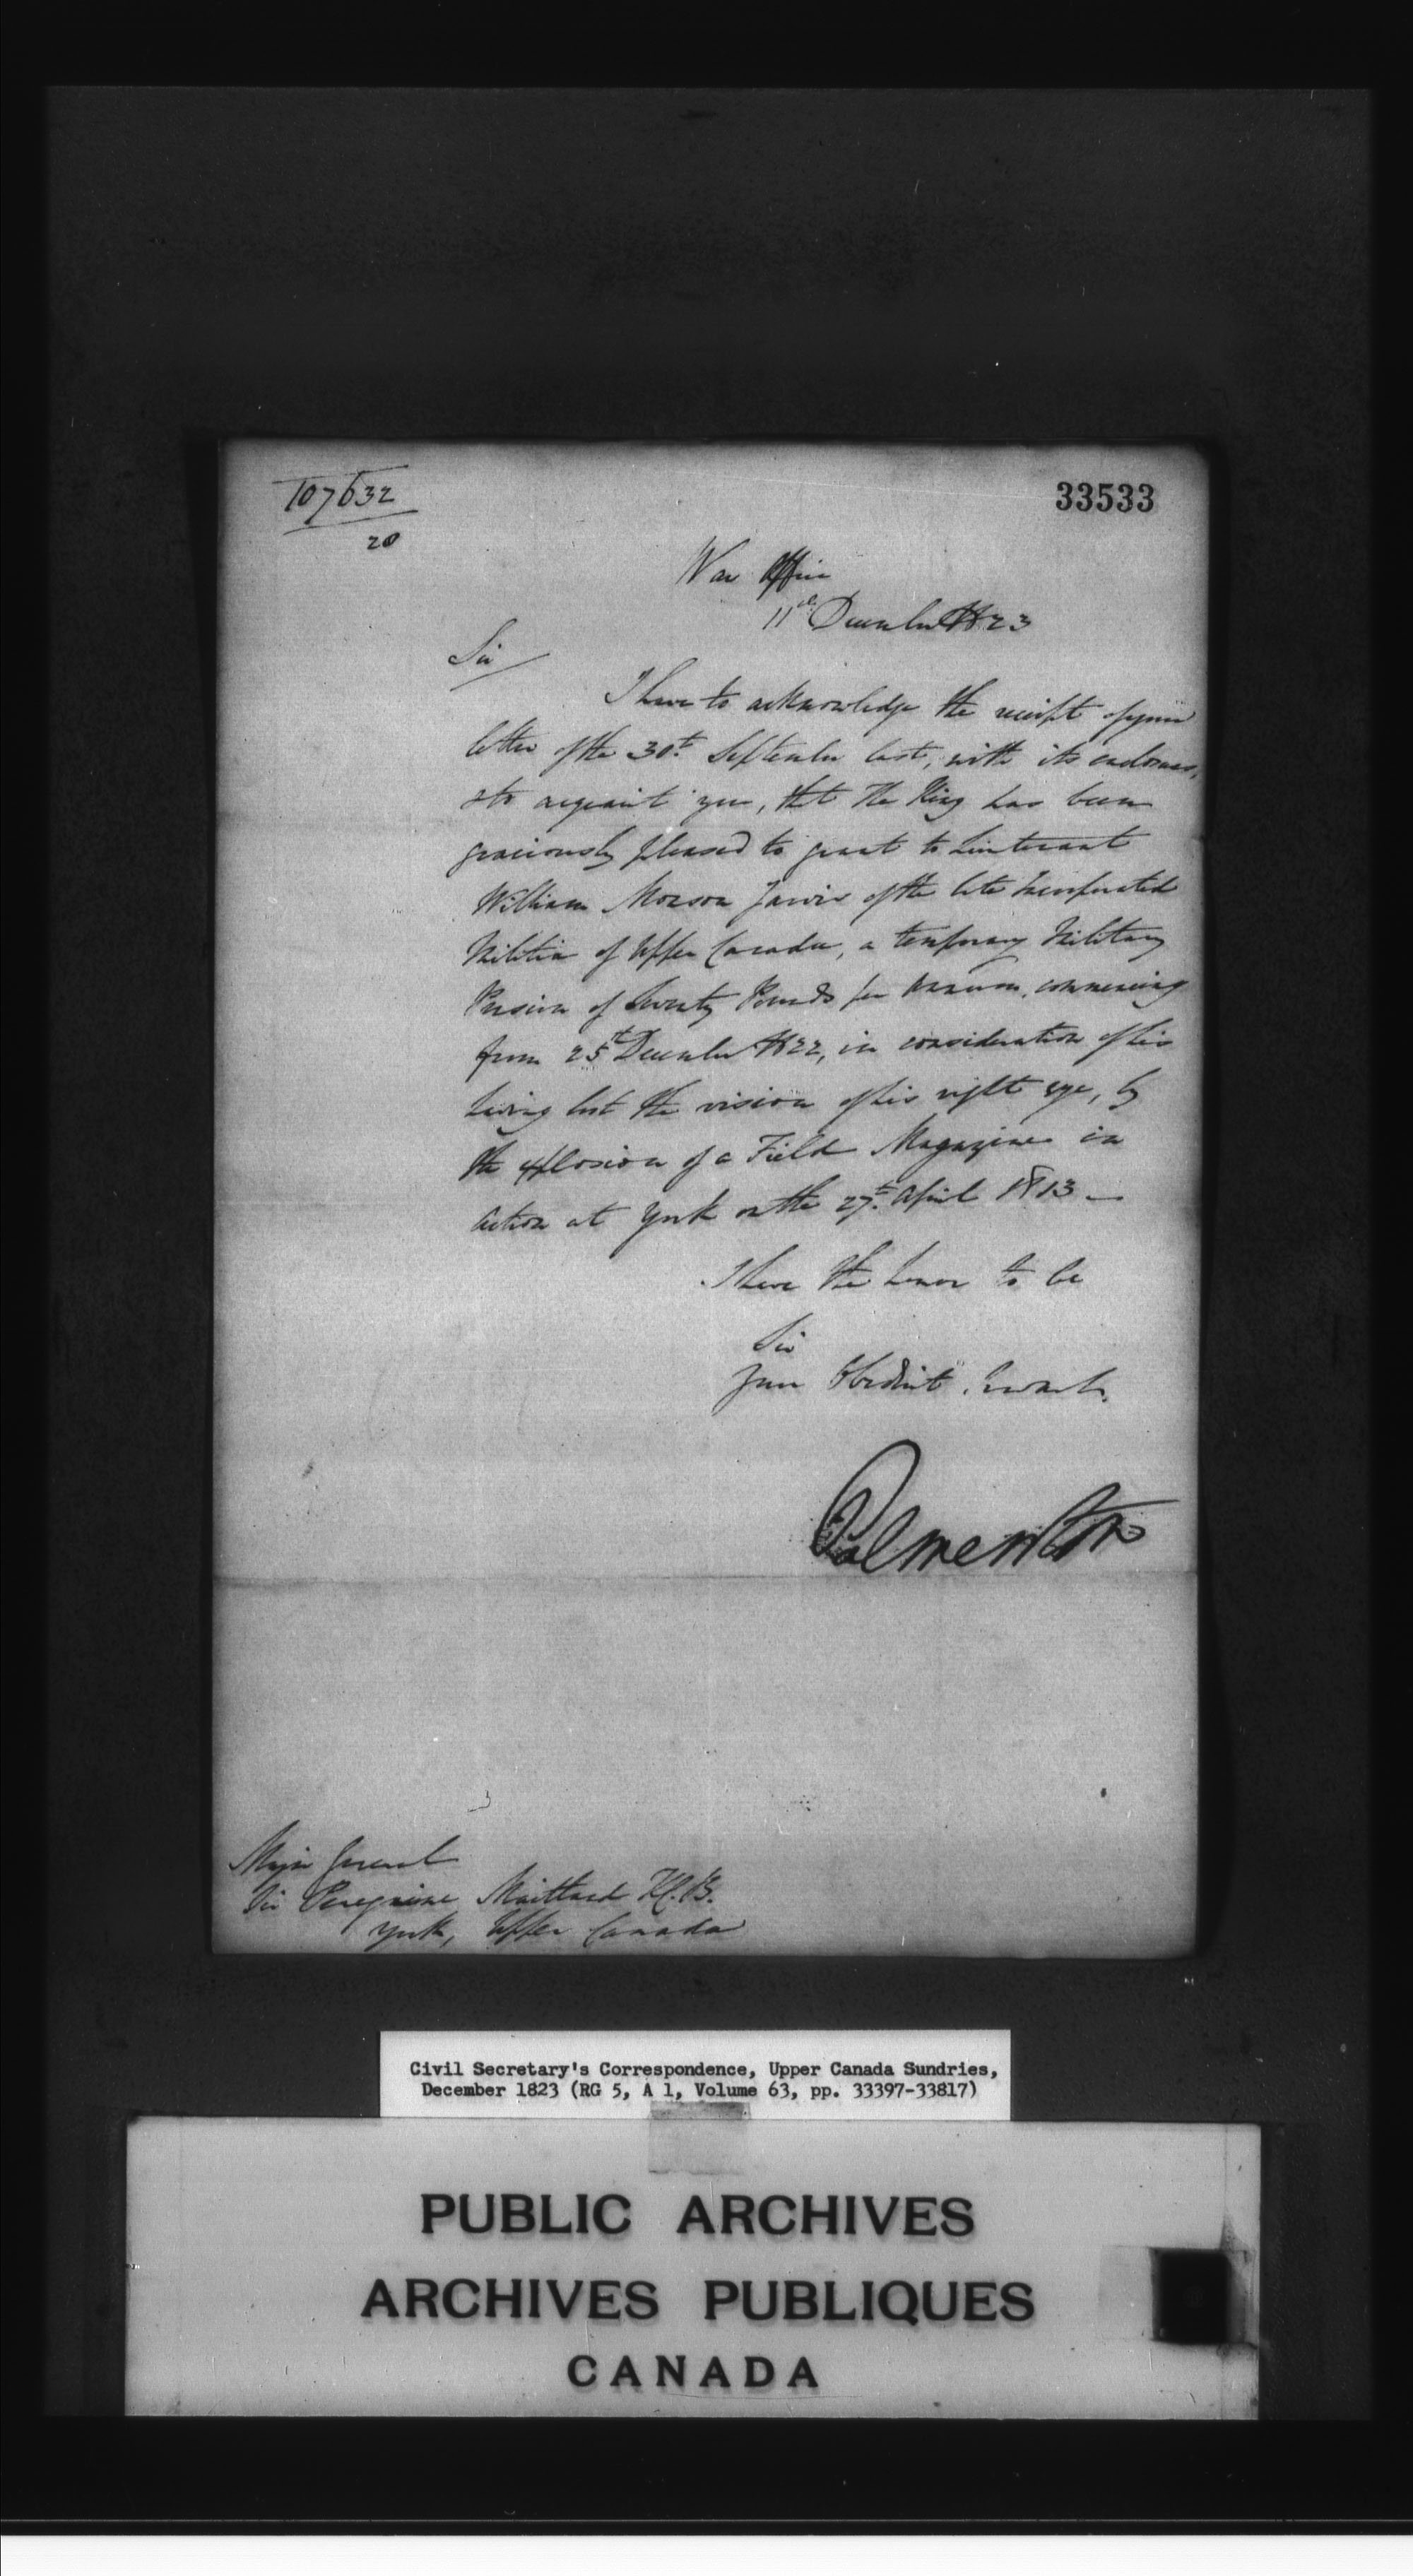 107632
20
33533
War Office
11th December 1823
Sir
I have to acknowledge the receipt of your
letter of the 30th September last, with its enclosures,
& to acquaint you, that The King has been
graciously pleased to grant to Lieutenant
William Monson Jarvis of the late Incorporated
Militia of Upper Canada, a temporary Military
Pension of Pounds per Annum, commencing
from 25th December 1822, in consideration of his
having lost the vision of his right eye, by
the explosion of a Field Magazine in
action at York on the 27th April 1813 —
I have the honor to be
Sir
Your Obedient Servant
Palmerston
Major General
Sir Peregrine Maitland K.C.B.
York, Upper Canada
Civil Secretary's Correspondence, Upper Canada Sundries,
December 1823 (RG 5, A 1, Volume 63, pp. 33397-33817)
PUBLIC ARCHIVES
ARCHIVES PUBLIQUES
CANADA